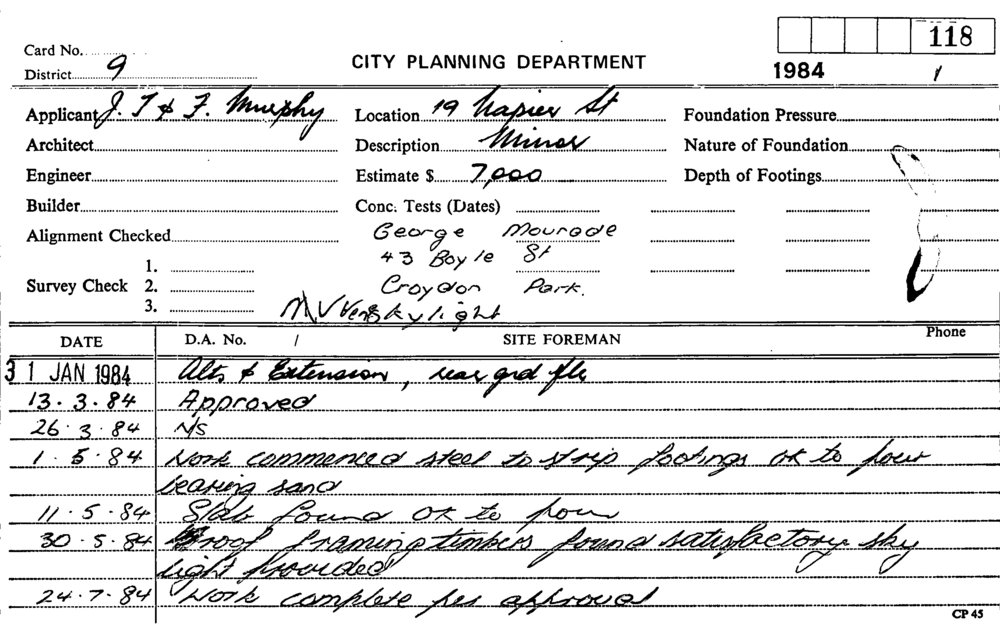 Card No.
118
District 9
CITY PLANNING DEPARTMENT
1984 1
Applicant J. T & F. Murphy Location 19 Napier St Foundation Pressure
Architect Description Minor Nature of Foundation
Engineer Estimate $ 7,000 Depth of Footings
Builder Conc. Tests (Dates)
Alignment Checked George Mourade
43 Boyle St
1.
Survey Check 2. Croydon Park.
3. Skylight
DATE D.A. No. / SITE FOREMAN Phone
31 JAN 1984 Alts & Extension, rear grd flr
13.3.84 Approved
26.3.84 N/S
1.5.84 Work commenced steel to strip footings ok to pour
bearing sand
11.5.84 Slab found OK to pour
30.5.84 roof framing timbers found satisfactory sky
light provided
24.7.84 Work complete per approval
CP 45